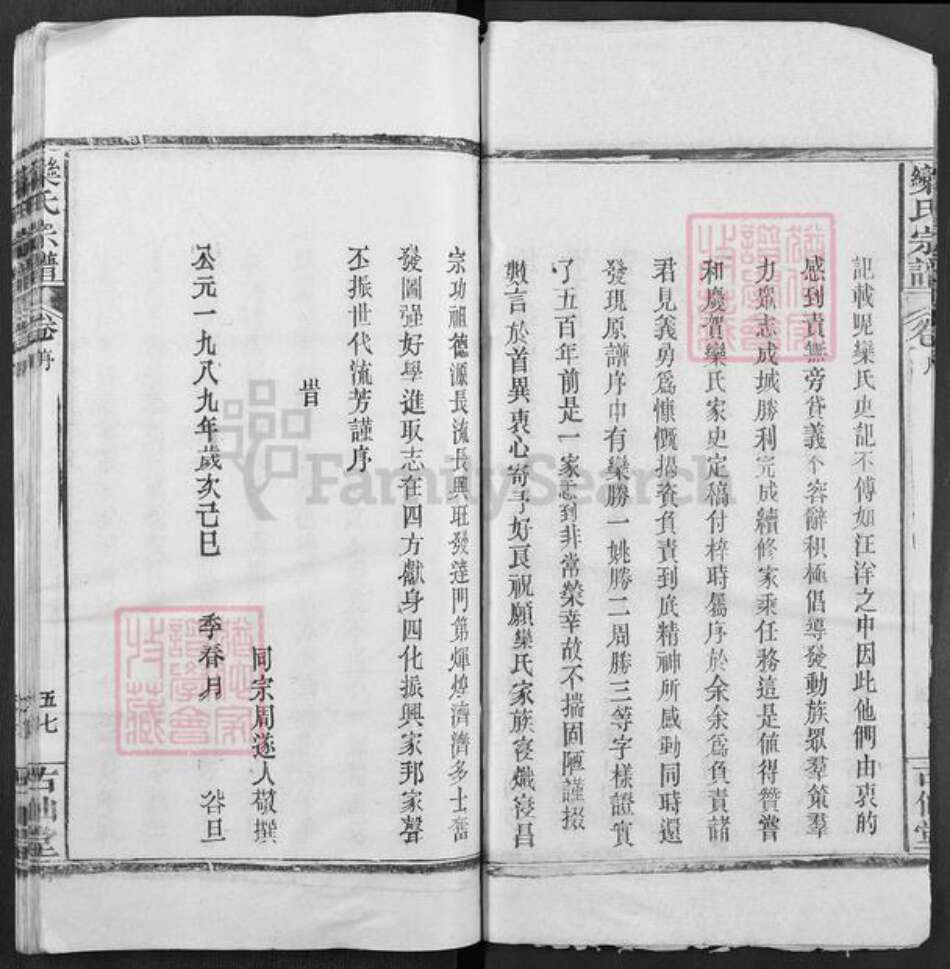 欒氏宗譜
卷 序
古仙堂
記載呢欒氏史記不傳如汪洋之中因此他們由衷的
感到責無旁貸義不容辭积極倡導發動族眾羣策羣
力眾志成城勝利完成續修家乘任務這是値得贊賞
和慶賀欒氏家史定稿付梓時屬序於余余爲負責諸
君見義勇爲慷慨捐資負責到底精神所感動同時還
發現原譜序中有欒勝一姚勝二周勝三等字樣證實
了五百年前是一家感到非常榮幸故不揣固陋謹掇
數言於首異衷心寄予好良祝願欒氏家族寖熾寖昌
宗功祖德源長流長興旺發達門第煇煌濟濟多士奮
發圖强好學進取志在四方獻身四化振興家邦家聲
丕振世代流芳謹序
旹
公元一九八九年歲次己巳 季春月 谷旦
同宗周遂人敬撰
欒氏宗譜
卷 序
五七
古仙堂
FamilySearch